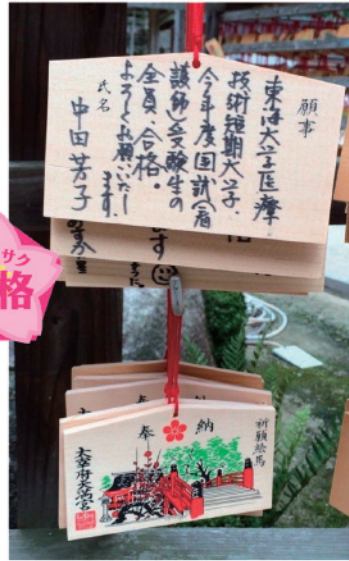 願事
東海大学医療
技術短期大学
今年度国試(看
護師)受験生の
全員合格。
よろしくお願いいたし
ます。
氏名
中田芳子
サク
格
奉
納
祈願絵馬
太宰府天満宮